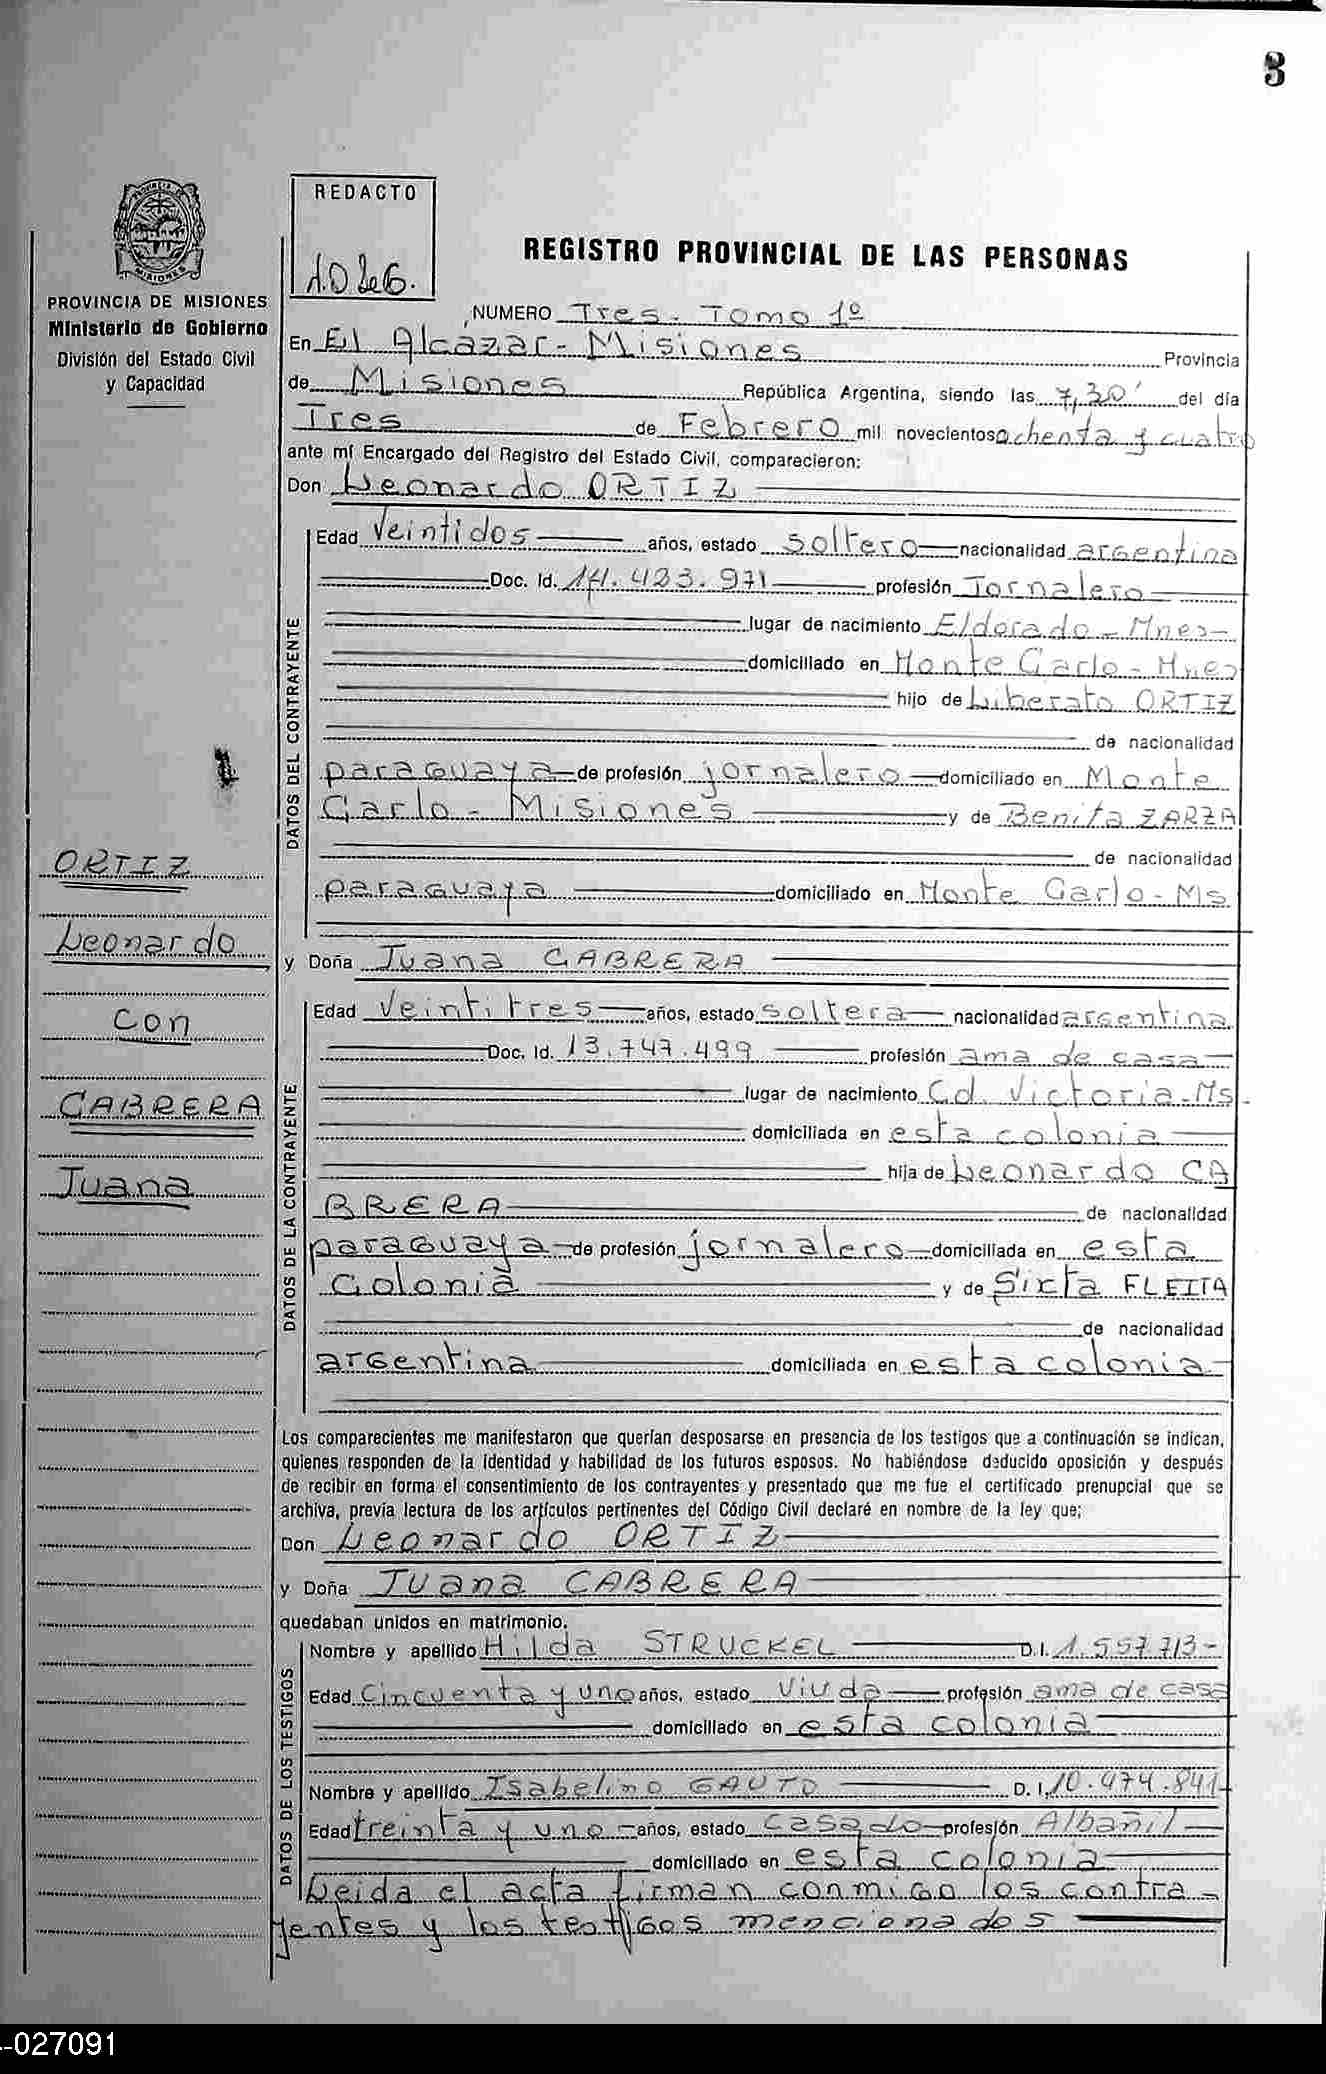 3
REDACTO
PROVINCIA DE MISIONES
Ministerio de Gobierno
División del Estado Civil
y Capacidad
REGISTRO PROVINCIAL DE LAS PERSONAS
NUMERO Tres. Tomo 1º
En El Alcázar - Misiones Provincia
de Misiones República Argentina, siendo las 7,30' del día
Tres de Febrero mil novecientos ochenta y cuatro
ante mí Encargado del Registro del Estado Civil, comparecieron:
Don Leonardo ORTIZ
DATOS DEL CONTRAYENTE
Edad Veintidos años, estado Soltero nacionalidad argentina
Doc. Id. 14.423.971 profesión Jornalero
lugar de nacimiento Eldorado - Mnes-
domiciliado en Monte Carlo - Mnes
hijo de Liberato ORTIZ
de nacionalidad
paraguaya de profesión jornalero domiciliado en Monte
Carlo - Misiones y de Benita ZARZA
de nacionalidad
paraguaya domiciliado en Monte Carlo - Ms
ORTIZ
Leonardo
con
CABRERA
Juana
y Doña Juana CABRERA
DATOS DE LA CONTRAYENTE
Edad Veintitres años, estado soltera nacionalidad argentina
Doc. Id. 13.747.499 profesión ama de casa
lugar de nacimiento Cd. Victoria - Ms-
domiciliada en esta colonia
hija de Leonardo CA
BRERA de nacionalidad
paraguaya de profesión jornalero domiciliada en esta
Colonia y de Sixta FLEITA
de nacionalidad
argentina domiciliada en esta colonia
Los comparecientes me manifestaron que querían desposarse en presencia de los testigos que a continuación se indican,
quienes responden de la identidad y habilidad de los futuros esposos. No habiéndose deducido oposición y después
de recibir en forma el consentimiento de los contrayentes y presentado que me fue el certificado prenupcial que se
archiva, previa lectura de los artículos pertinentes del Código Civil declaré en nombre de la ley que;
Don Leonardo ORTIZ
y Doña Juana CABRERA
quedaban unidos en matrimonio.
DATOS DE LOS TESTIGOS
Nombre y apellido Hilda STRUCKEL D.I. 1.557.713-
Edad Cincuenta y uno años, estado Viuda profesión ama de casa
domiciliado en esta colonia
Nombre y apellido Isabelino GAUTO D. I. 10.474.841-
Edad treinta y uno años, estado casado profesión Albañil
domiciliado en esta colonia
Leida el acta firman conmigo los contra-
yentes y los testigos mencionados
-027091